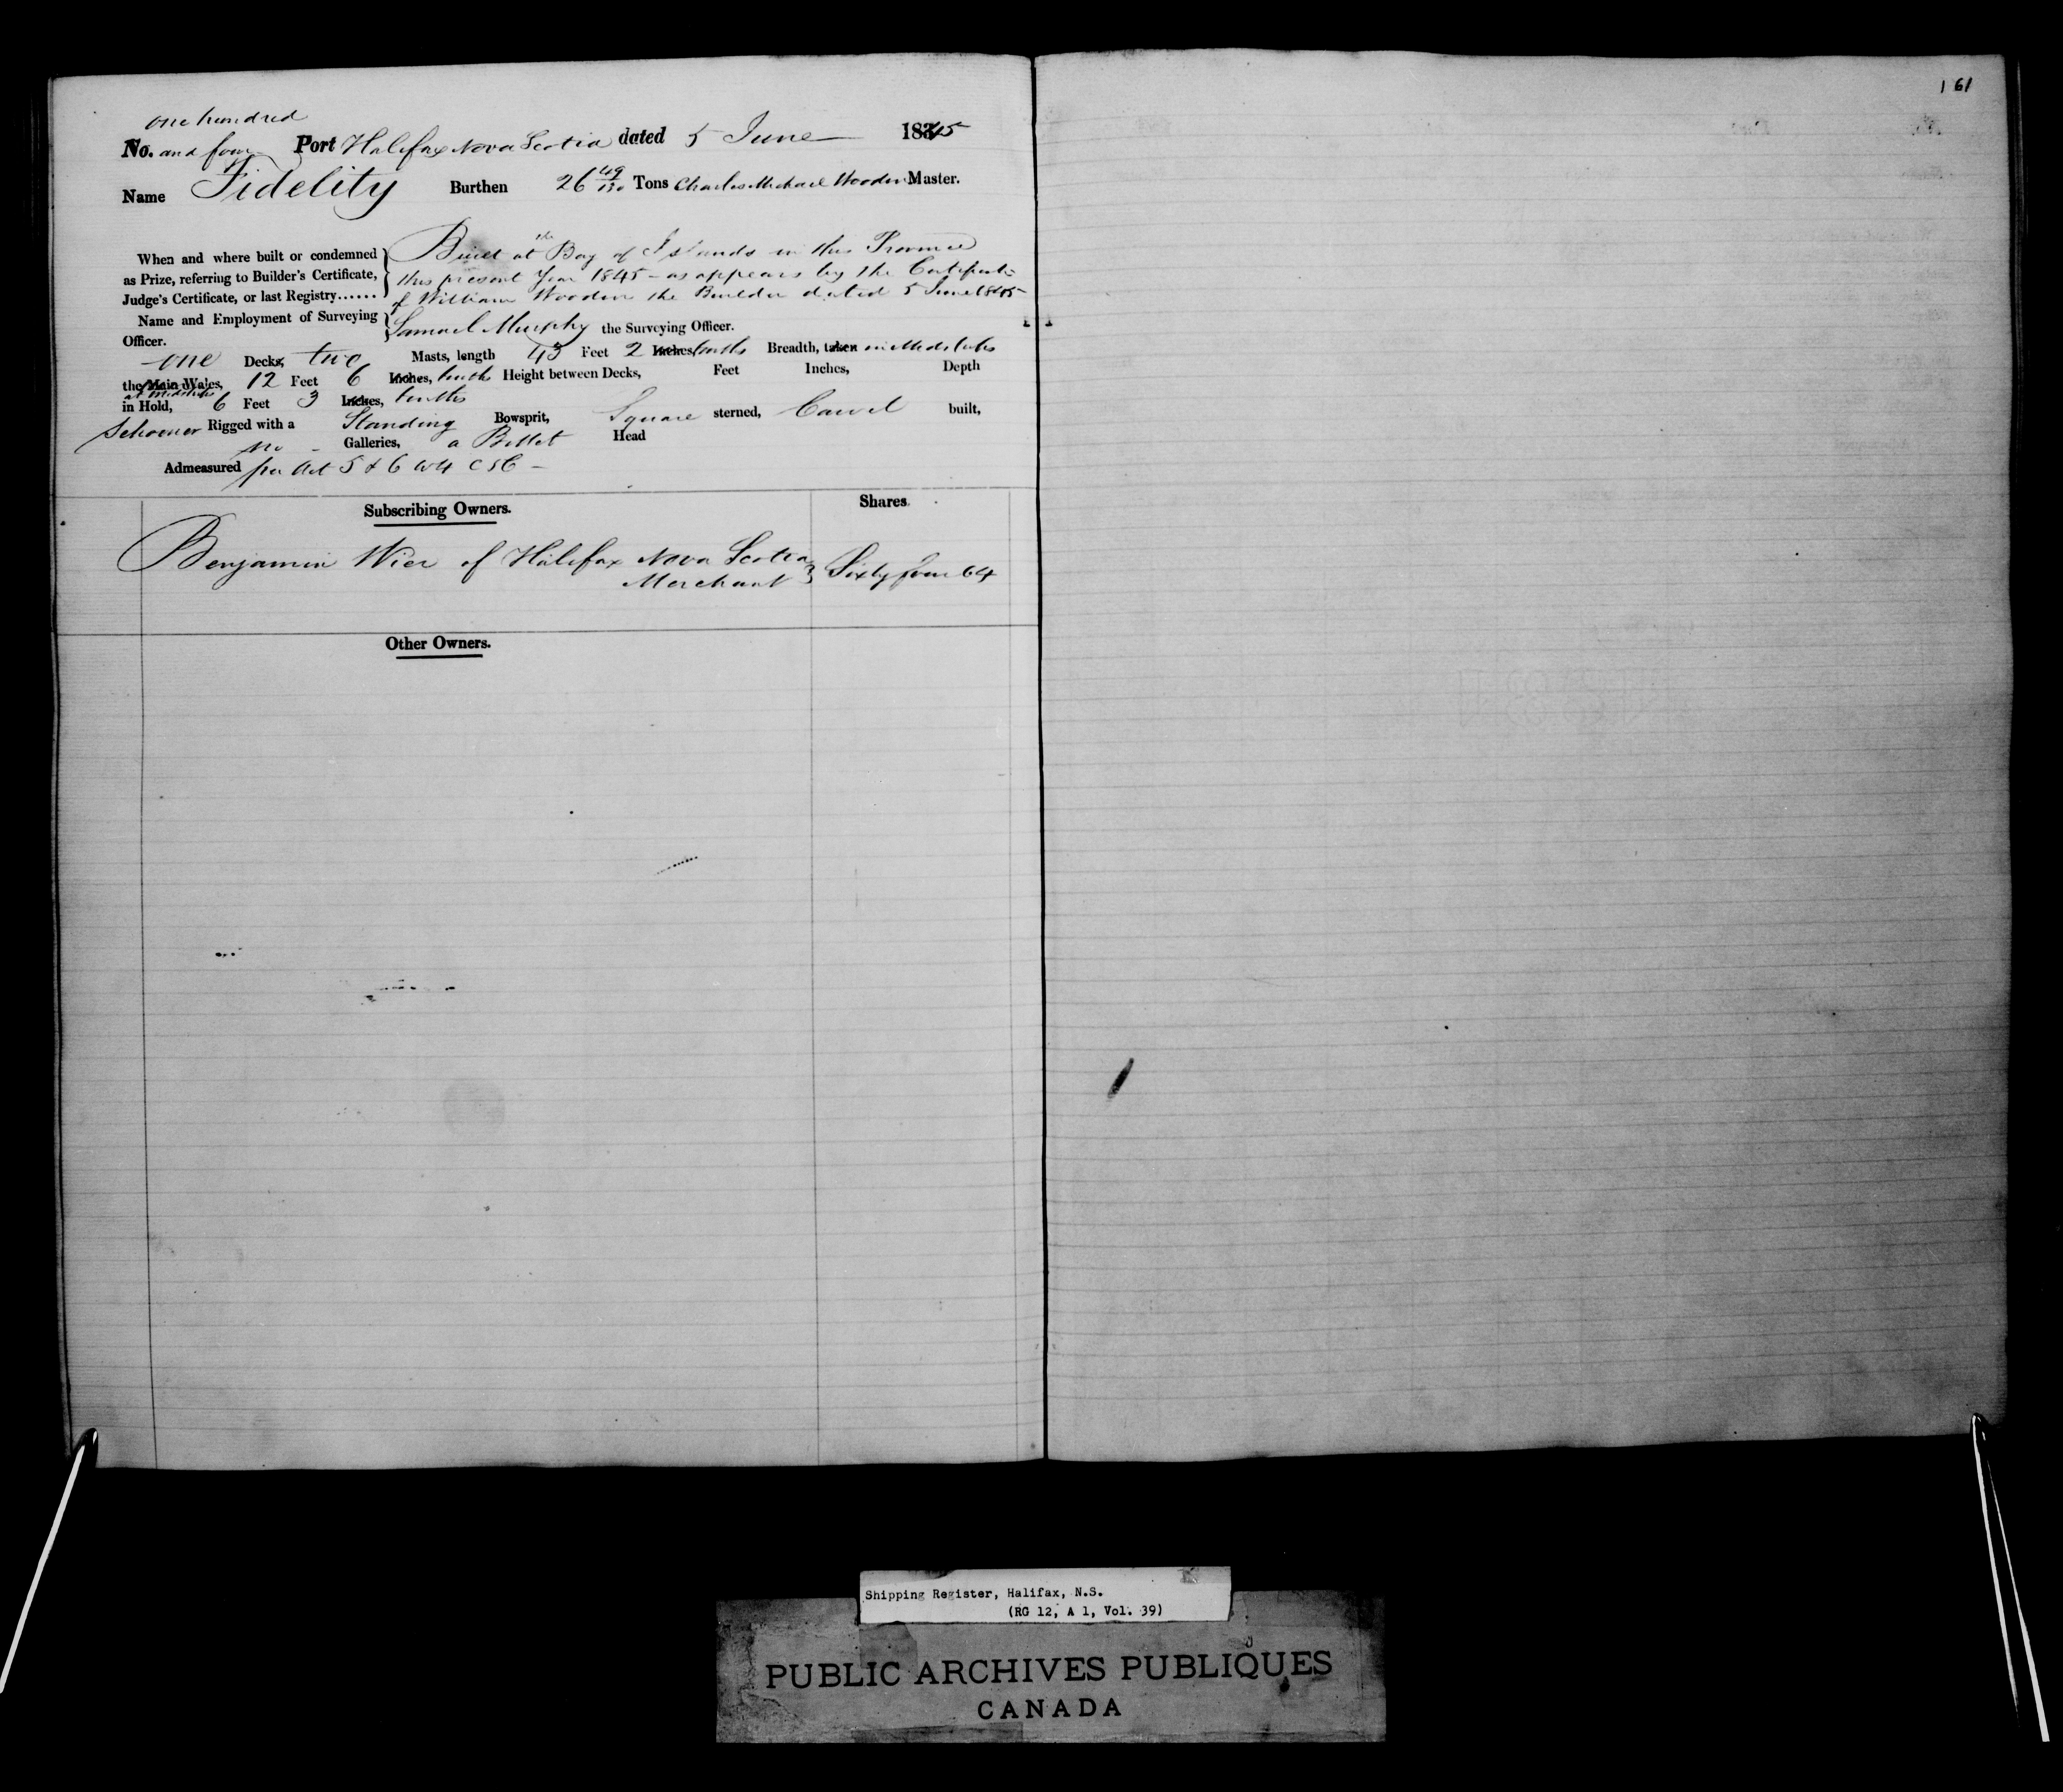 161
one hundred
No. and four Port Halifax Nova Scotia dated 5 June 1845
Name Fidelity Burthen 26 49/130 Tons Charles Michael Wooden Master.
When and where built or condemned as Prize, referring to Builder's Certificate, Judge's Certificate, or last Registry......
Built at the Bay of Islands in this Province
this present Year 1845 - as appears by the Certificate
of William Wooden the Builder dated 5 June 1845
Name and Employment of Surveying Officer.
Samuel Murphy the Surveying Officer.
one Decks, two Masts, length 43 Feet 2 Inches tenths Breadth, taken in Midships
the Main Wales, 12 Feet 6 Inches, tenths Height between Decks, Feet Inches, Depth
at Midships
in Hold, 6 Feet 3 Inches, tenths
Schooner Rigged with a Standing Bowsprit, Square sterned, Carvel built,
no Galleries, a Billet Head
Admeasured per Act 5 & 6 W4 C 56 -
Subscribing Owners. Shares.
Benjamin Wier of Halifax Nova Scotia
Merchant } Sixty four 64
Other Owners.
Shipping Register, Halifax, N.S.
(RG 12, A 1, Vol. 39)
PUBLIC ARCHIVES PUBLIQUES
CANADA